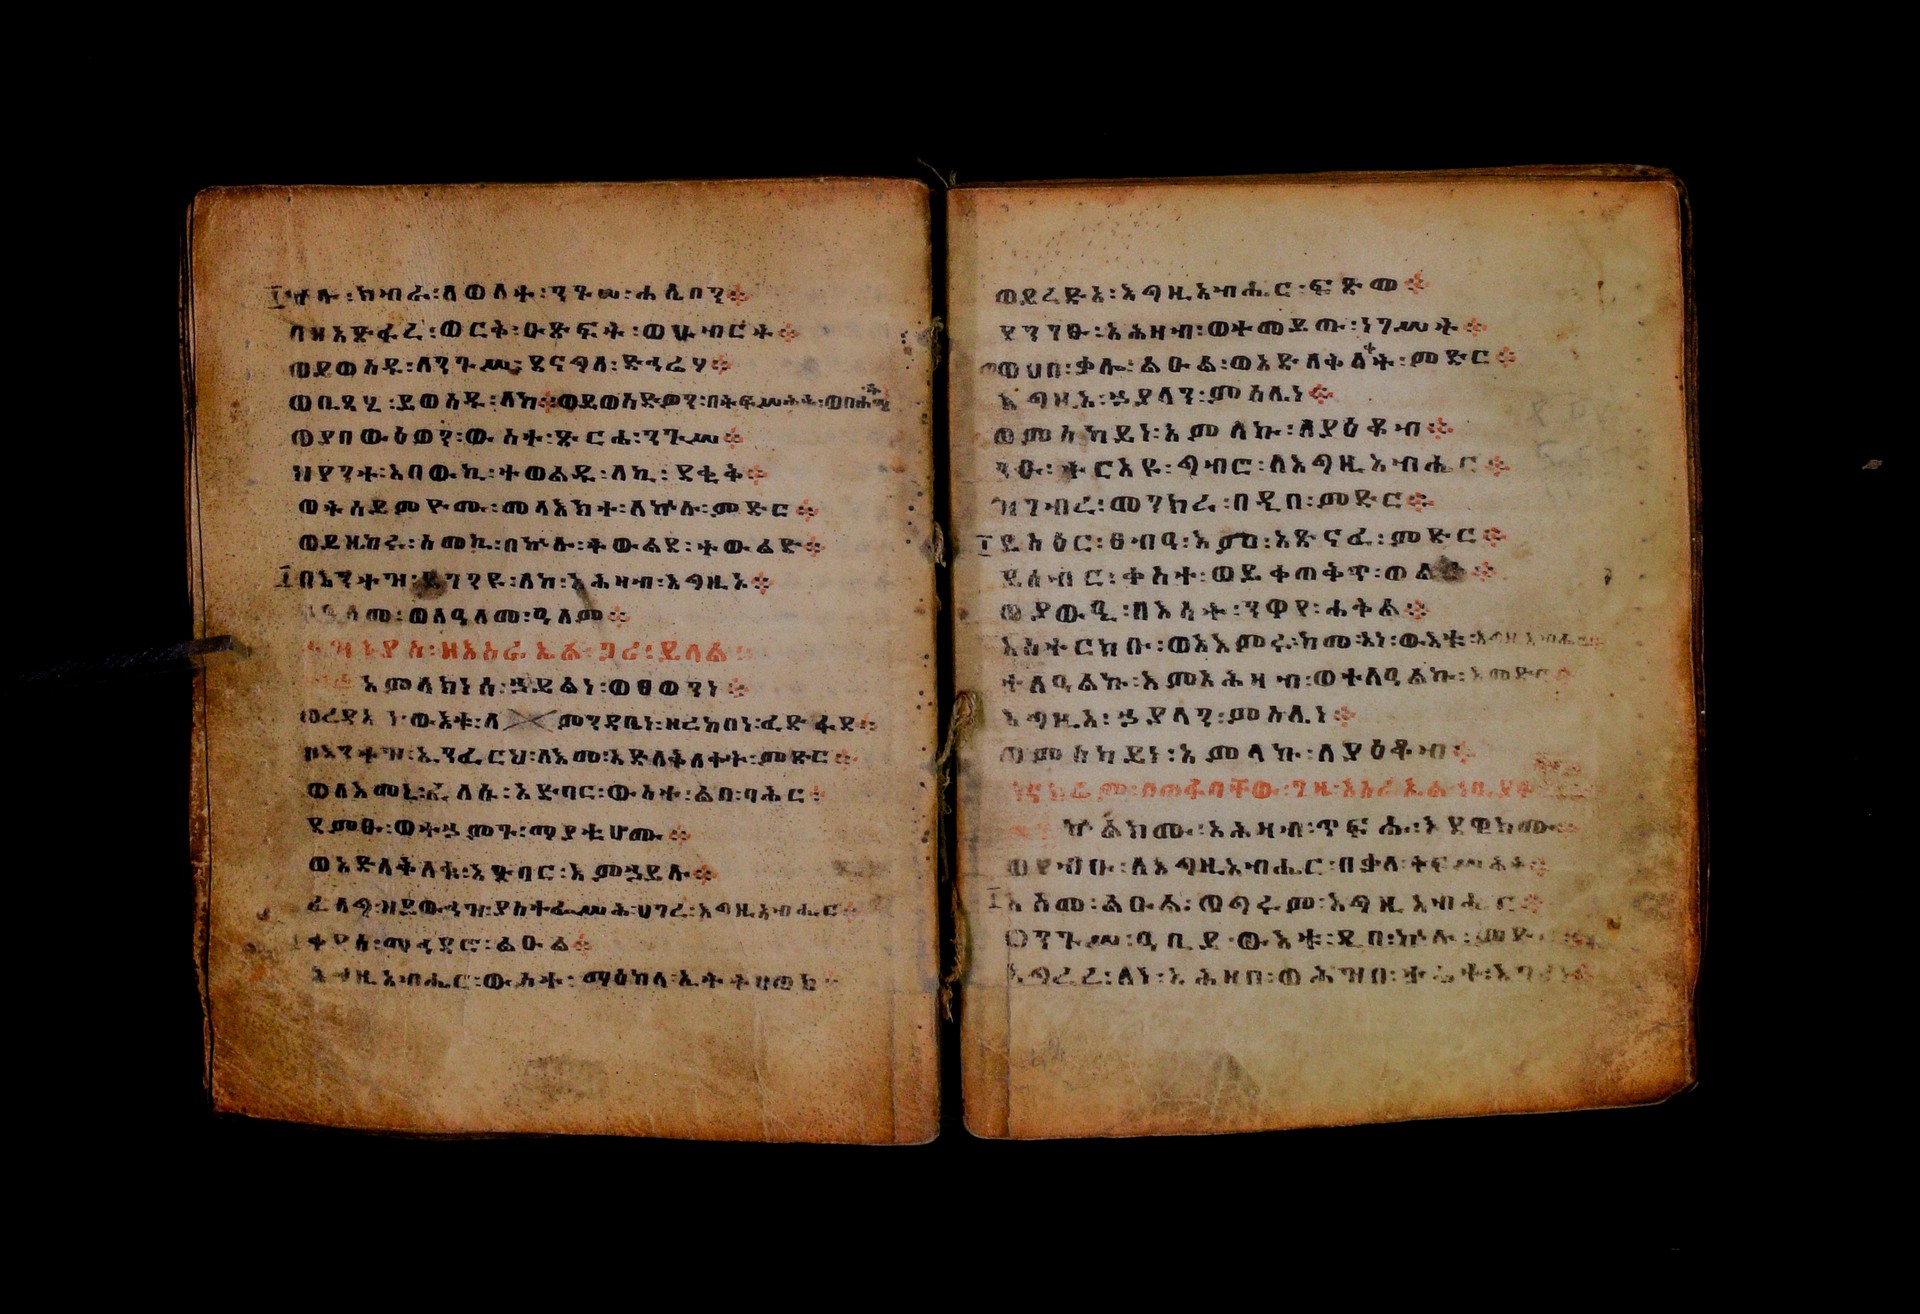 ኵሉ፡ክብራ፡ለወለተ፡ንጉሠ፡ሐሴቦን።
በዘአጽፈረ፡ወርቅ፡ዑጽፍት፡ወሁብርት።
ወይወስዱ፡ለንጉሥ፡ደናግለ፡ድኅሬሃ።
ወቢጺሃ፡ይወስዱ፡ለከ።ወይወስድዎን፡በትፍሥሕት፡ወበሐሤ
ወያበውዕወን፡ውስተ፡ጽርሐ፡ንጉሥ።
ህየንተ፡አበውኪ፡ተወልዱ፡ለኪ፡ደቂቅ።
ወትሰይምዮሙ፡መላእክተ፡ለኵሉ፡ምድር።
ወይዘከሩ፡ስመኪ፡በኵሉ፡ትውልደ፡ተውልድ።
በእንተዝ፡ይገንዩ፡ለከ፡አሕዛብ፡እግዚኦ።
ለዓለመ፡ወለዓለመ፡ዓለም።
ዘእስራኤል፡
አምላክነሰ፡ኃይልነ፡ወፀወንነ።
ወረዳኢነ፡ውእቱ፡ለምንዳቤነ፡ዘረከበነ፡ፈድፋደ።
በእንተዝ፡ኢንፈርህ፡ለእመ፡አድለቅለቀት፡ምድር።
ወለእመኒ፡ፈለሱ፡አድባር፡ውስተ፡ልበ፡ባሕር።
ደምፁ፡ወተኃመጉ፡ማያቲሆሙ።
ወአድለቅለቁ፡አድባር፡እምኃይሉ።
ፈለግ፡ዝይውኅዝ፡ያስተፌሥሕ፡ሀገረ፡እግዚአብሔር።
ቀደሰ፡ማኅደሮ፡ልዑል።
እግዚአብሔር፡ውስተ፡ማዕከላ፡ኢትትሀወክ።
ወይረድኣ፡እግዚአብሔር፡ፍጽመ።
ደንገፁ፡አሕዛብ፡ወተመይጡ፡ነገሥት።
ወሀበ፡ቃሎ፡ልዑል፡ወአድለቅለቀት፡ምድር።
እግዚአ፡ኃያላን፡ምስሌነ።
ወምስካይነ፡አምላኩ፡ለያዕቆብ።
ንዑ፡ትርአዩ፡ግብሮ፡ለእግዚአብሔር።
ዝገብረ፡መንክረ፡በዲበ፡ምድር።
ይስዕር፡ፀብዓ፡እምነ፡አጽናፈ፡ምድር።
ይሰብር፡ቀስተ፡ወይቀጠቅጥ፡ወልታ።
ወያውዒ፡በእሳት፡ንዋየ፡ሐቅል።
አስተርክቡ፡ወአእምሩ፡ከመ፡አነ፡ውእቱ፡እግዚአብሔር።
ተለዓልኩ፡እምአሕዛብ፡ወተለዓልኩ፡እምድር።
እግዚአ፡ኃያላን፡ምስሌነ።
ወምስካይነ፡አምላኩ፡ለያዕቆብ።
ኵልክሙ፡አሕዛብ፡ጥፍሑ፡እደዊክሙ።
ወየብቡ፡ለእግዚአብሔር፡በቃለ፡ትፍሥሕት።
እስመ፡ልዑል፡ወግሩም፡እግዚአብሔር።
ወንጉሥ፡ዓቢይ፡ውእቱ፡ዲበ፡ኵሉ፡ምድር።
አግረረ፡ለነ፡አሕዛበ፡ወሕዝበ፡